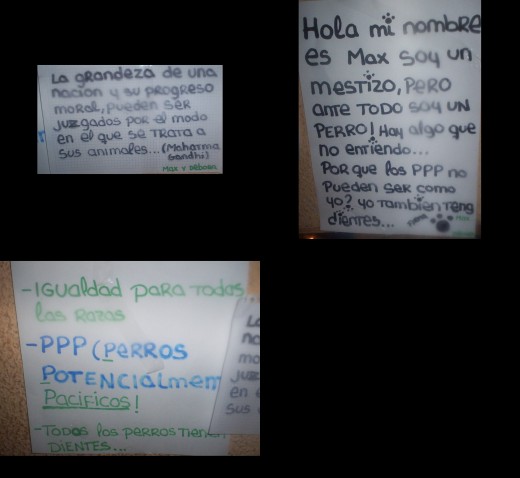 La grandeza de una
nación y su progreso
moral, pueden ser
juzgados por el modo
en el que se trata a
sus animales...(Mahatma
Gandhi)
Max y Débora
Hola mi nombre
es Max soy un
mestizo, pero
ante todo soy un
perro! Hay algo que
no entiendo...
Por que los PPP no
pueden ser como
yo? yo también teng
dientes...
-Igualdad para todas
las razas
-PPP (Perros
Potencialmen
Pacificos!
-Todos los perros tienen
dientes...
La
na
mo
juz
en e
sus